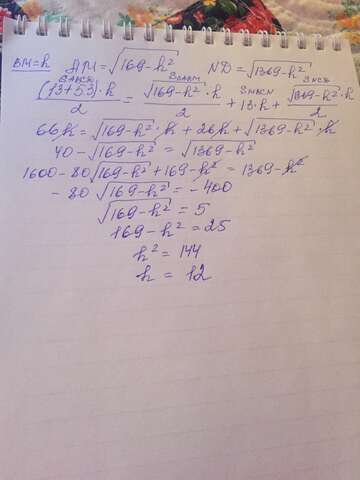 BM=h AM=√(169-h²) ND=√(1369-h²)
((13+53)·h)/2 = (√(169-h²)·h)/2 + 13·h + (√(1369-h²)·h)/2
66h = √(169-h²)·h + 26h + √(1369-h²)·h
40-√(169-h²) = √(1369-h²)
1600-80√(169-h²)+169-h² = 1369-h²
-80√(169-h²) = -400
√(169-h²) = 5
169-h² = 25
h² = 144
h = 12